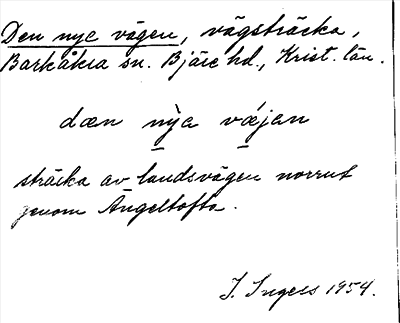 Den nye vägen, vägsträcka,
Barkåkra sn. Bjäre hd., Krist. län.
dæn nỳa vǽjen
sträcka av landsvägen norrut
genom Ängeltofta.
I. Ingers 1954.